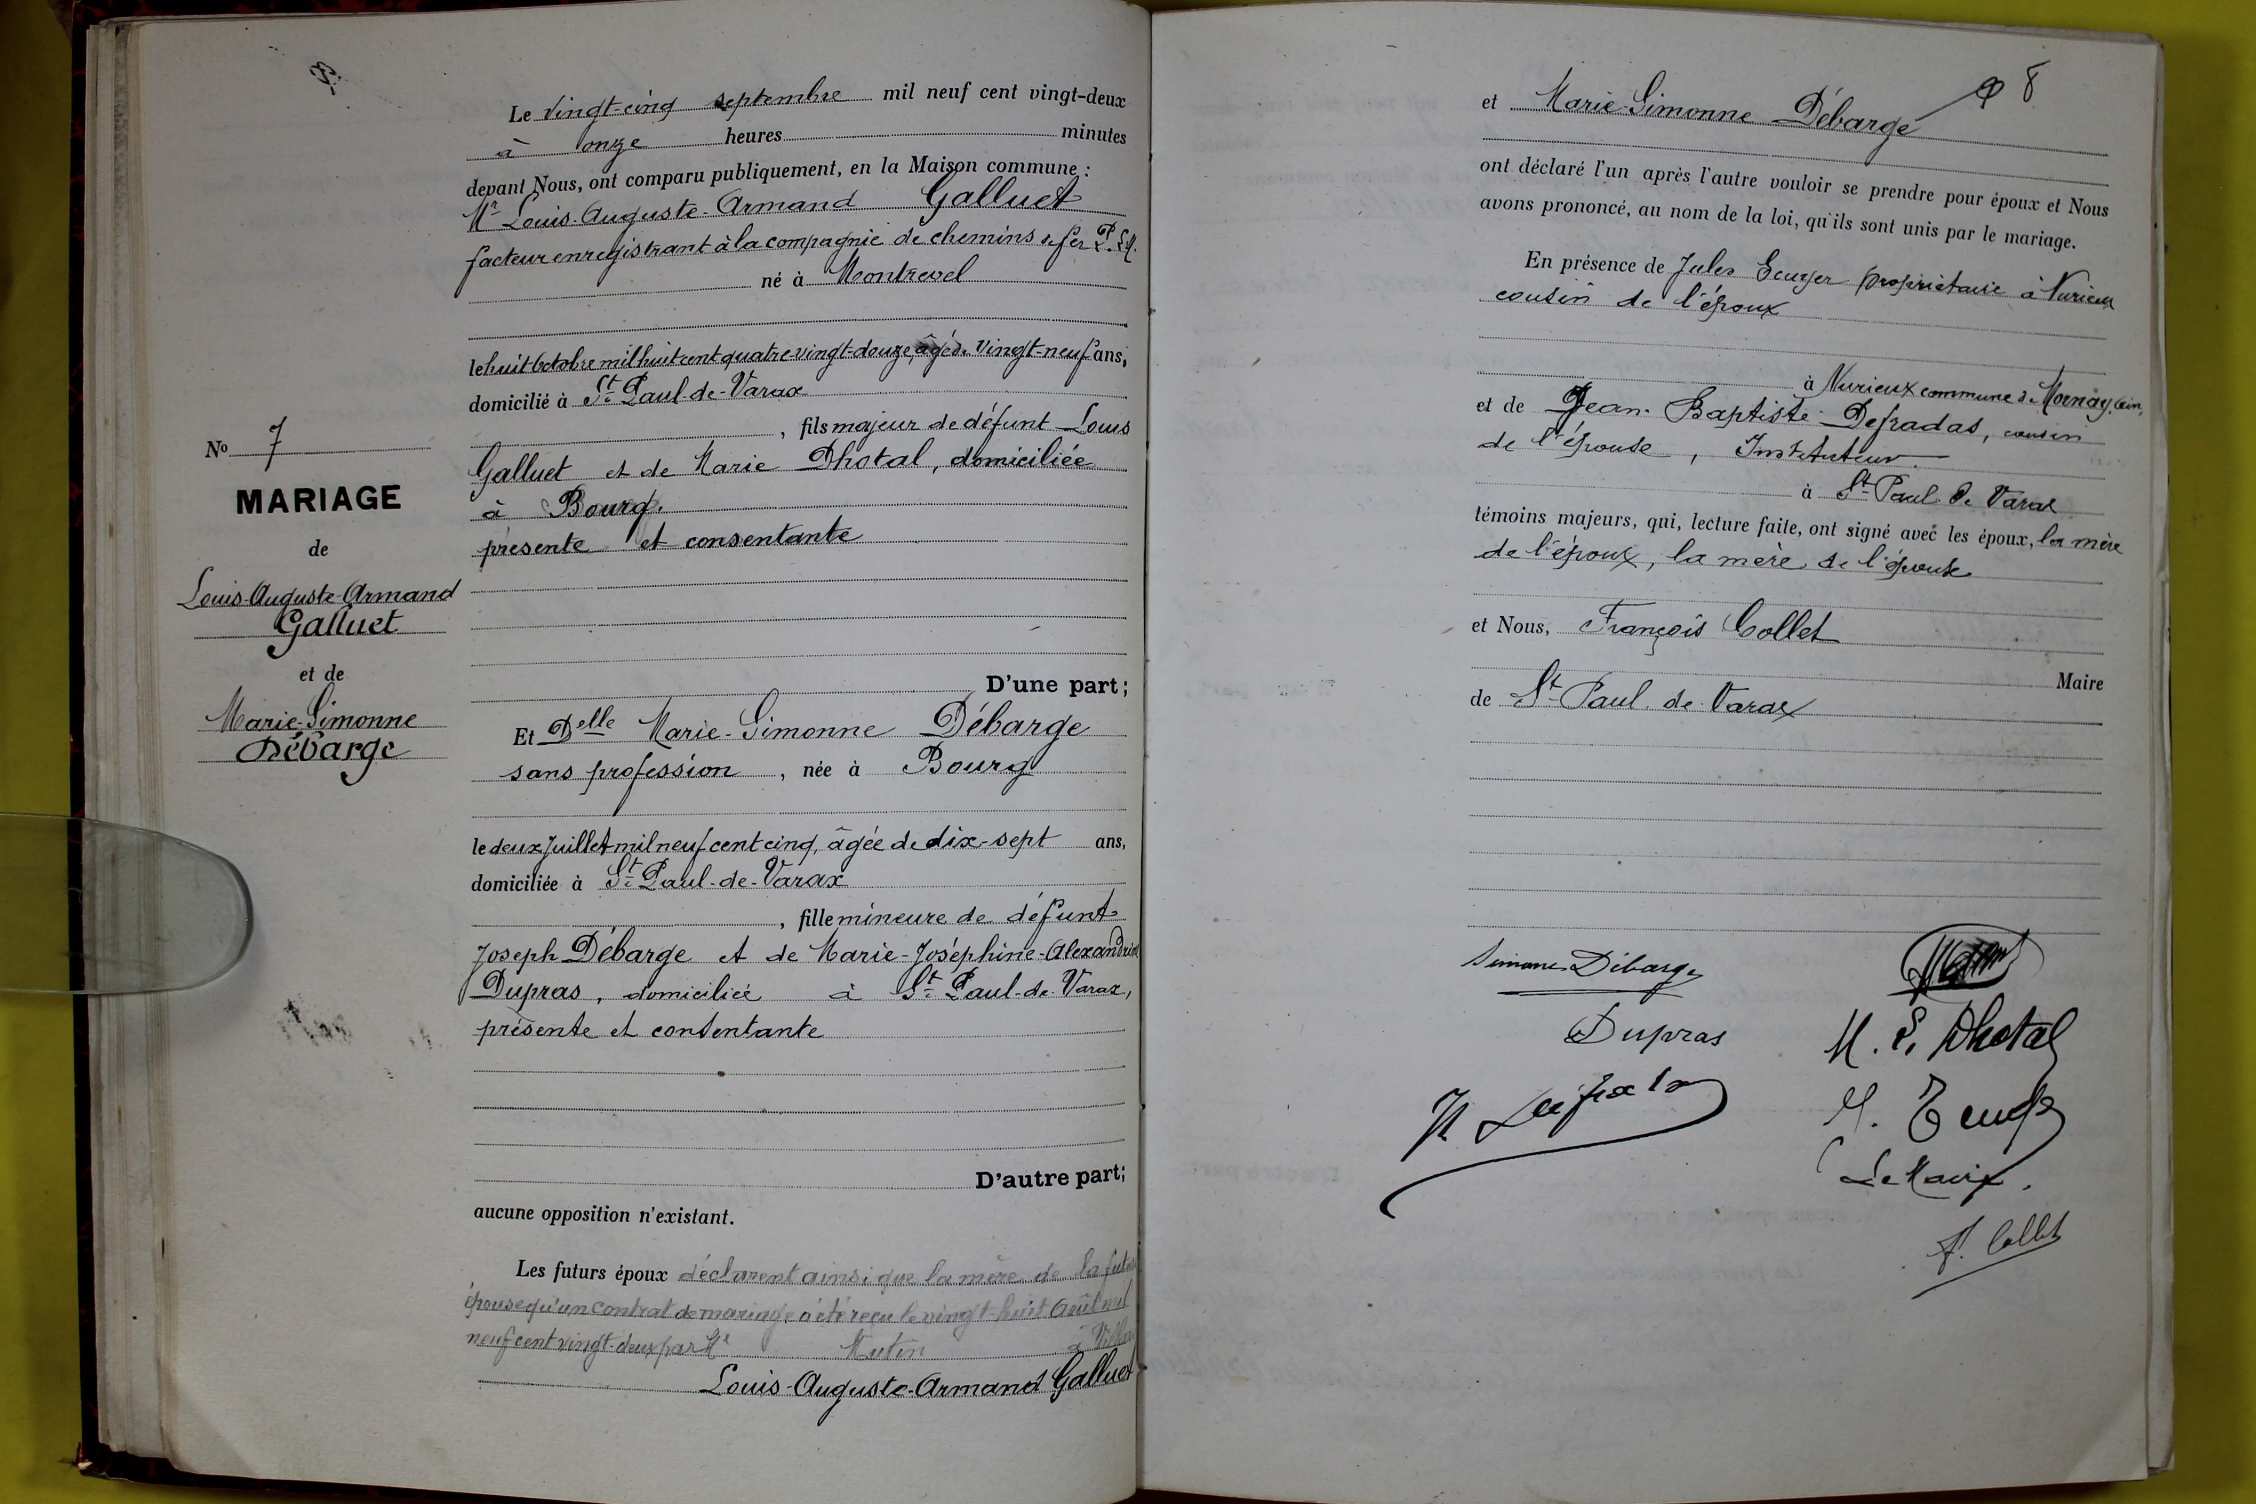 Le vingt-cinq septembre mil neuf cent vingt-deux
à onze heures minutes
devant Nous, ont comparu publiquement, en la Maison commune :
Mr Louis-Auguste-Armand Galluet
facteur enregistrant à la compagnie de chemins de fer P.L.M.
né à Montrevel
le huit Octobre mil huit cent quatre-vingt-douze, âgé de vingt-neuf ans,
domicilié à St Paul-de-Varax
, fils majeur de défunt Louis
Galluet et de Marie Dhotal, domiciliée
à Bourg.
présente et consentante
D'une part;
No 7
MARIAGE
de
Louis-Auguste-Armand
Galluet
et de
Marie-Simonne
Débarge
Et Delle Marie-Simonne Débarge
sans profession, née à Bourg
le deux Juillet mil neuf cent cinq, âgée de dix-sept ans,
domiciliée à St Paul-de-Varax
, fille mineure de défunt
Joseph Débarge et de Marie-Joséphine-Alexandrine
Dupras, domiciliée à St Paul-de-Varax,
présente et consentante
D'autre part;
aucune opposition n'existant.
Les futurs époux déclarent ainsi que la mère de la future
épouse qu'un contrat de mariage a été reçu le vingt-huit Août mil
neuf cent vingt-deux par Me Mutin à
Louis-Auguste-Armand Galluet
8
et Marie-Simonne Débarge
ont déclaré l'un après l'autre vouloir se prendre pour époux et Nous
avons prononcé, au nom de la loi, qu'ils sont unis par le mariage.
En présence de Jules Ecuyer propriétaire à Nurieux
cousin de l'époux
à Nurieux commune de Mornay, Ain,
et de Jean-Baptiste Defradas, cousin
de l'épouse, Instituteur
à St Paul de Varax
témoins majeurs, qui, lecture faite, ont signé avec les époux, la mère
de l'époux, la mère de l'épouse
et Nous, François Collet
Maire
de St Paul de Varax
Simone Débarge
Dupras
M. L. Dhotal
Le Maire.
F. Collet